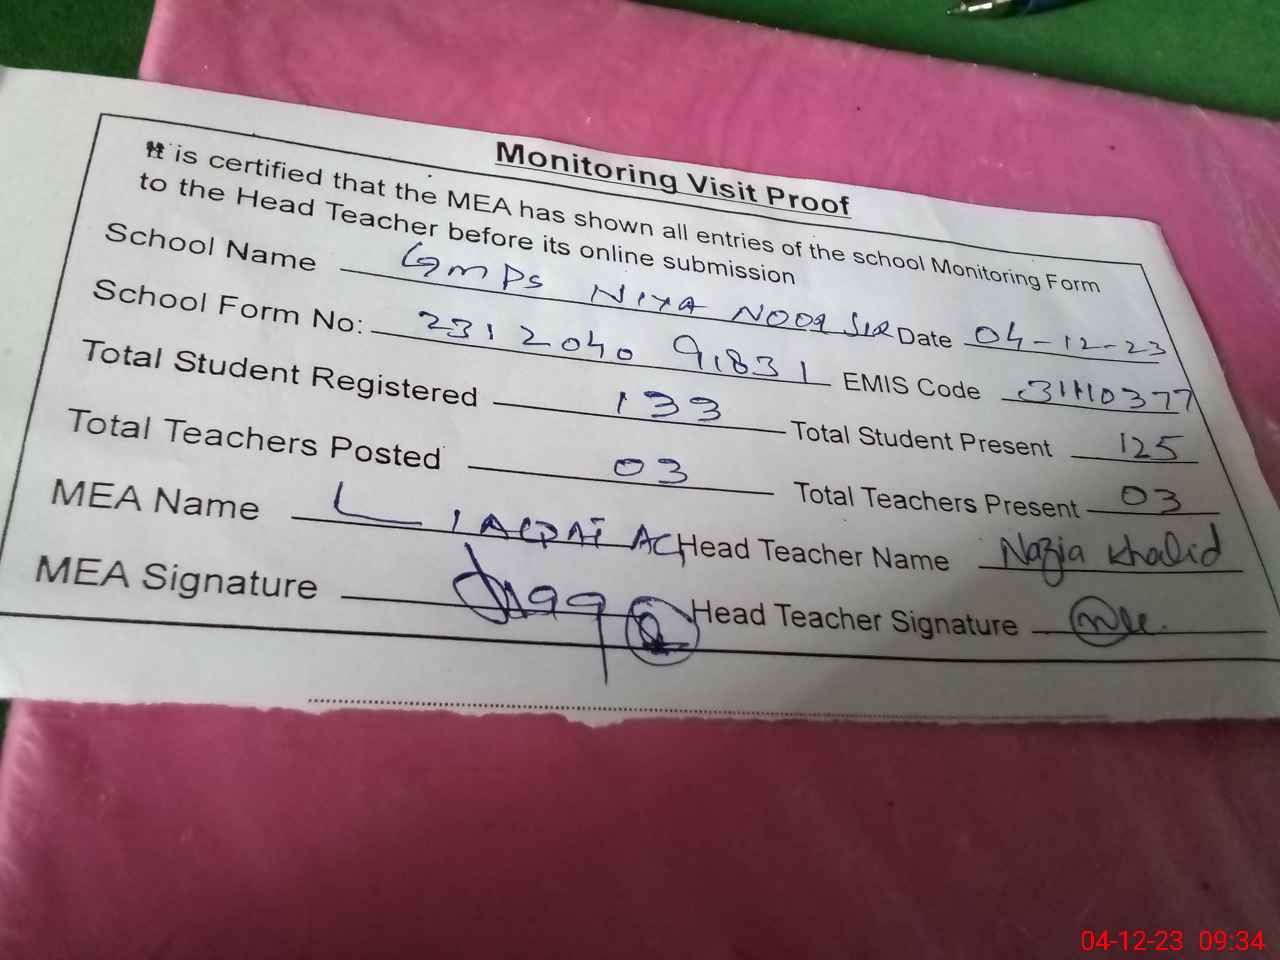 Monitoring Visit Proof
It is certified that the MEA has shown all entries of the school Monitoring Form
to the Head Teacher before its online submission
School Name GMPS NIYA NOOR Date 04-12-23
School Form No: 2312040 91831 EMIS Code 31110377
Total Student Registered 133 Total Student Present 125
Total Teachers Posted 03 Total Teachers Present 03
MEA Name Head Teacher Name Nazia Khalid
MEA Signature Head Teacher Signature
04-12-23 09:34